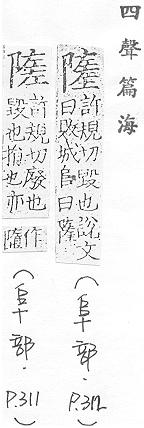 四聲篇海
許規切毀也說文
曰敗城𨸏曰
（阜部．P.312）
許規切廢也
毀也損也亦
作
（阜部．P.311）